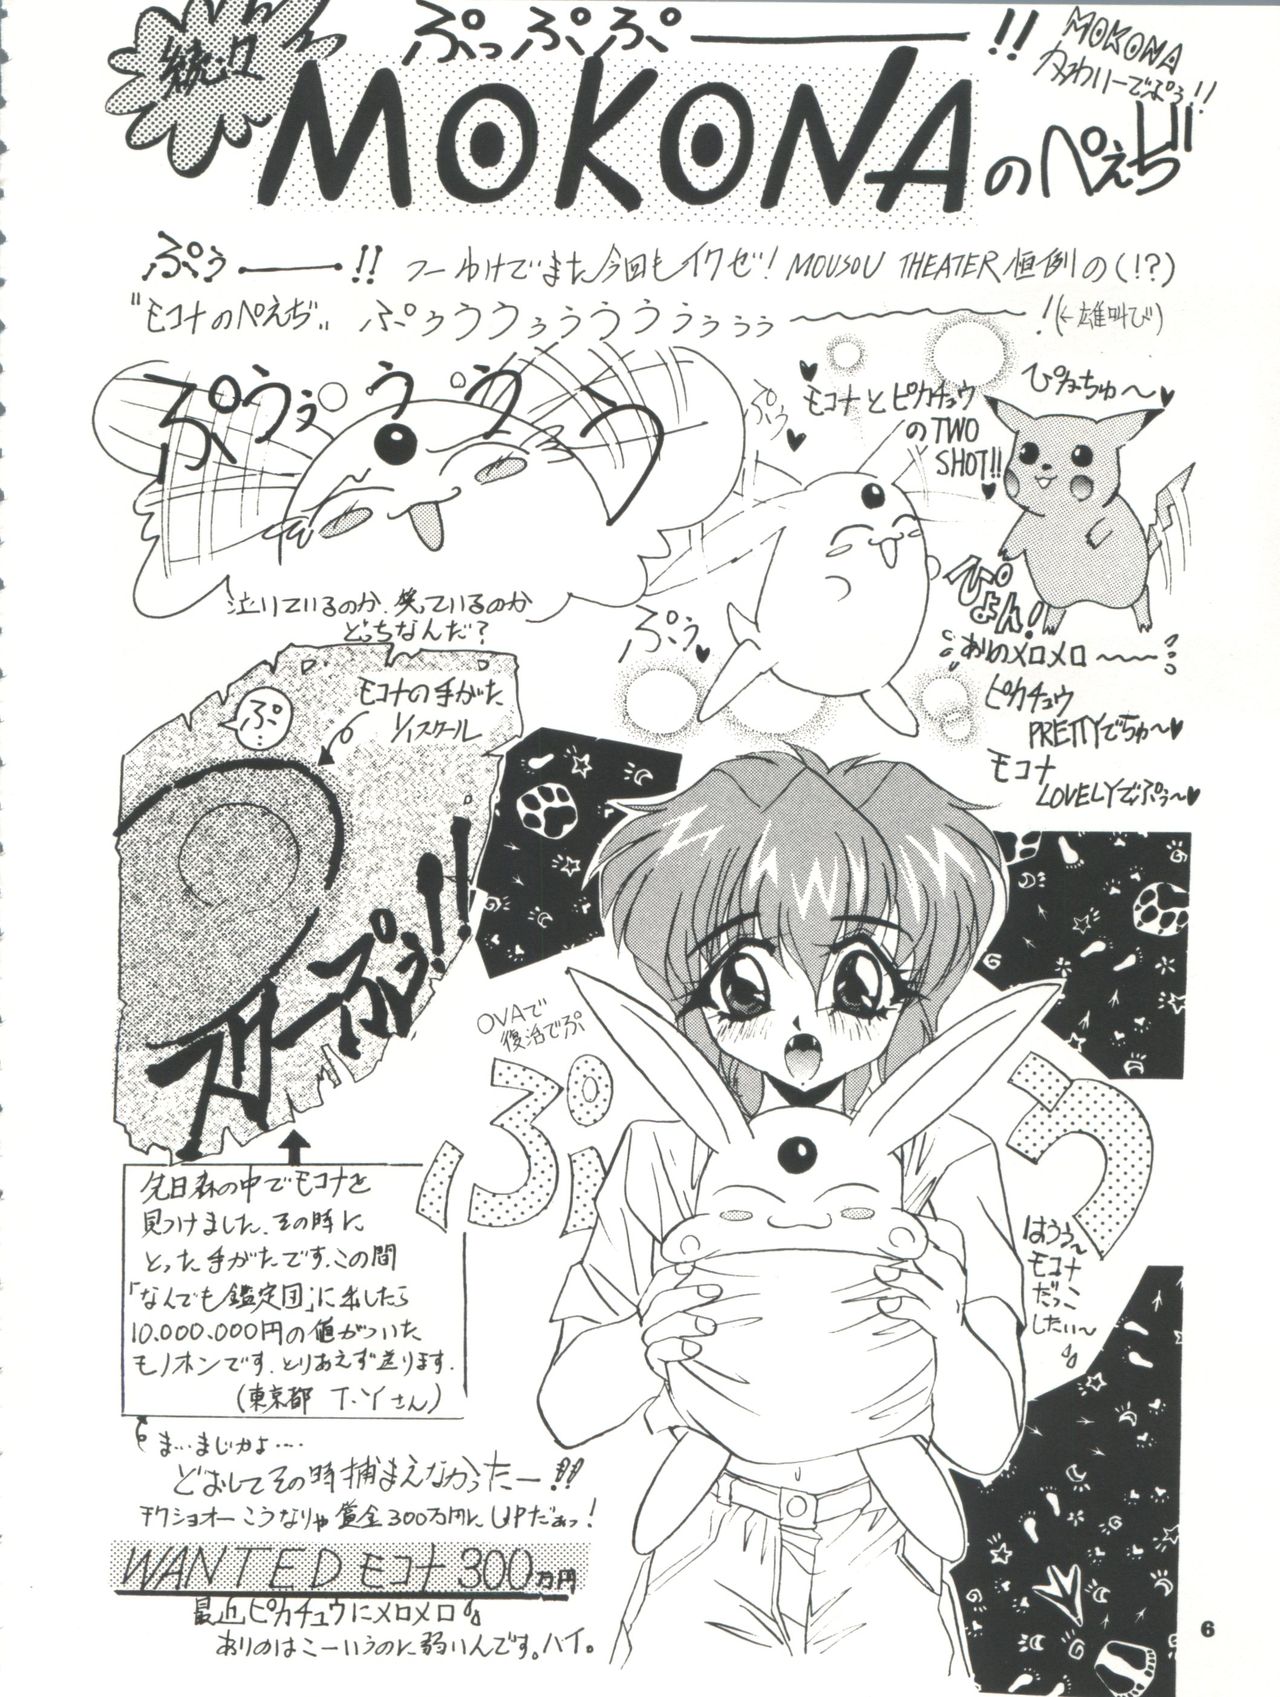 続々
ぷっぷぷぷ――――!!
MOKONA
かわいーでぷぅ!!
MOKONAのぺえぢ!!
ぷぅ――!! つーわけでまた今回もイクゼ! MOUSOU THEATER 恒例の(!?)
"モコナのぺえぢ" ぷぅぅうううぅうううぅぅぅぅ〜〜〜!(←雄叫び)
ぷうぅぅうぅうう
泣いているのか、笑っているのか
どっちなんだ?
ぷぅ♥
モコナとピカチュウ
のTWO
SHOT!!
♥
ぴかちゅ〜♥
ぴょん!
ぷぅ♥
おりのメロメロ〜〜
ピカチュウ
PRETTYでちゅ〜♥
モコナ
LOVELYでぷぅ〜♥
ぷ?
モコナの手がた
1/1スケール
スターぷぅ!!
OVAで
復活でぷ
ぷう
はうぅ〜
モコナ
だっこ
したい〜
先日森の中でモコナを
見つけました。その時に
とった手がたです。この間
「なんでも鑑定団」に出したら
10.000.000円の値がついた
モノホンです。とりあえず送ります。
(東京都 T.Yさん)
ま…まじかよ‥‥
どおしてその時捕まえなかったー!!
チクショオーこうなりゃ賞金300万円にUPだぁっ!
WANTED モコナ 300万円
最近ピカチュウにメロメロ
おりのはこーいうのに弱いんです。ハイ。
6